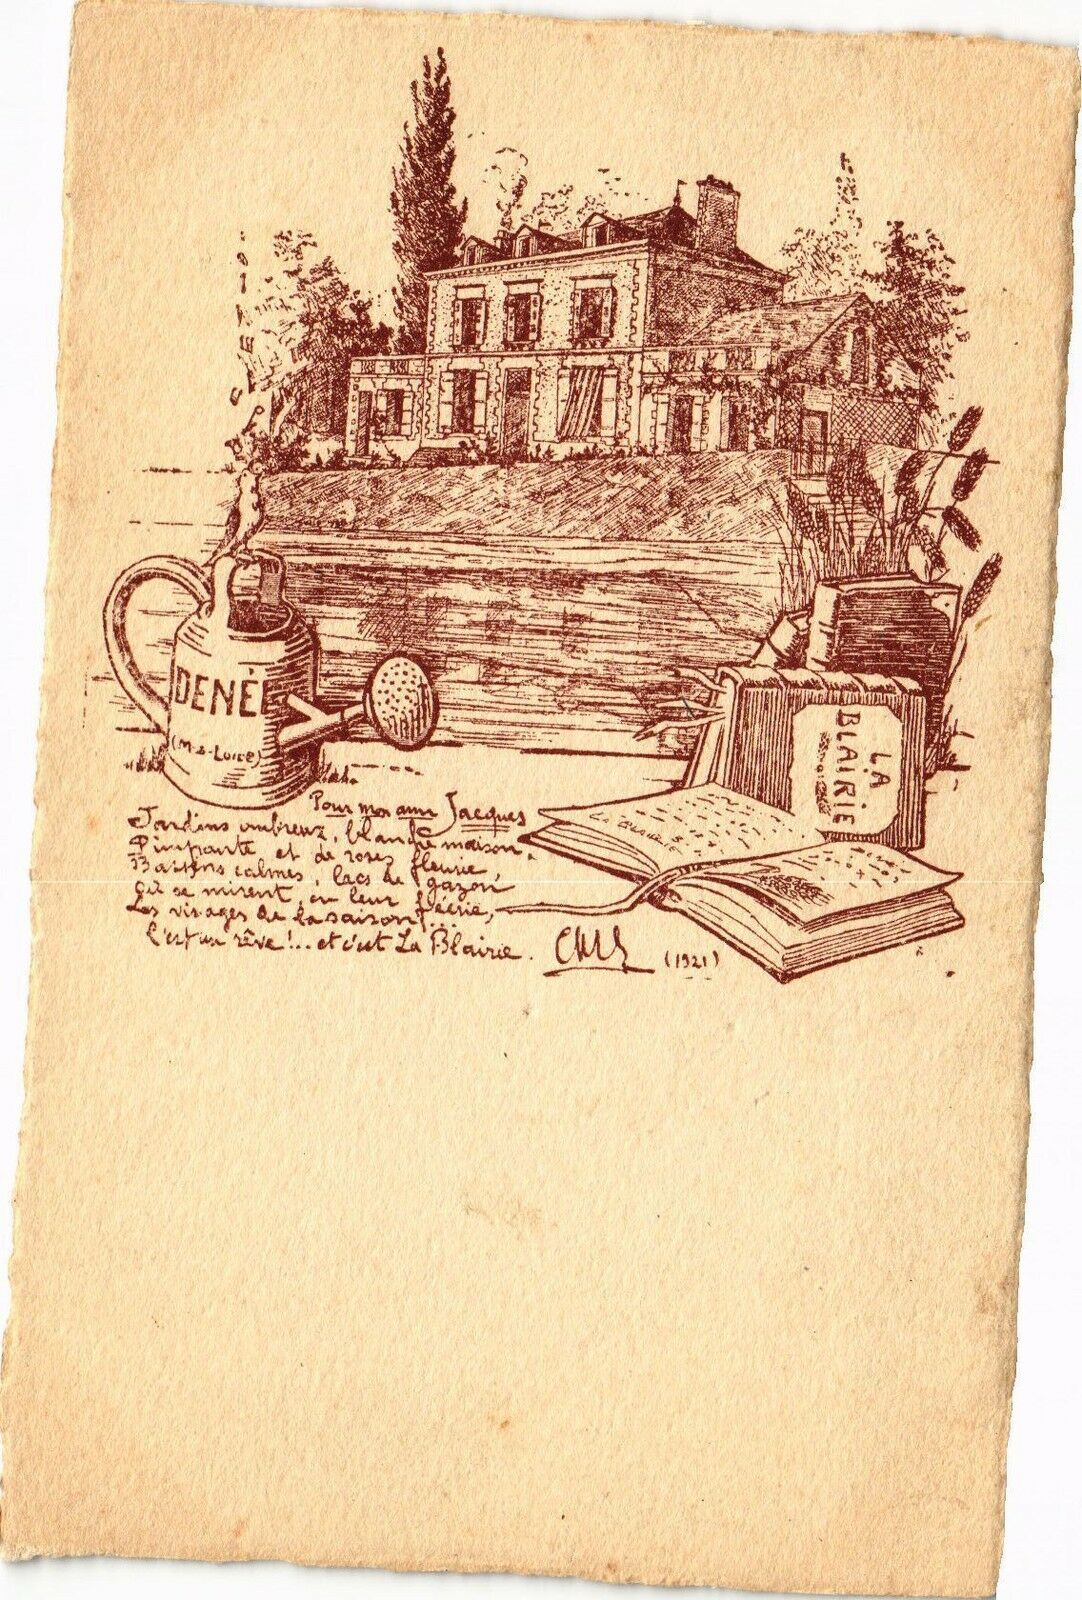 DENÉE
(M-&-Loire)
LA
BLAIRIE
Pour mon ami Jacques
Jardins ombreux, blanche maison,
Pimpante et de roses fleurie,
Bassins calmes, lacs de gazon
Où se mirent, en leur féérie,
Les visages de la saison!...
C'est un rêve!... et c'est La Blairie.
(1921)